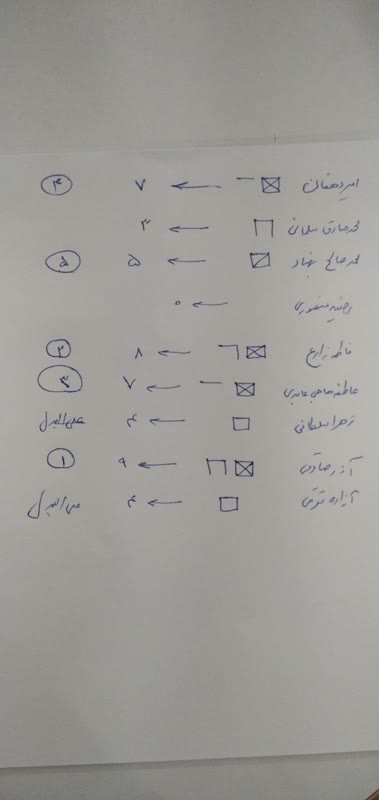 امیر دهقان ← ۷ ۴
محمد صادق سلمانی ← ۳
محمد صالح بهزاد ← ۵ ۵
رضیه منصوری ← ۰
فاطمه زارع ← ۸ ۲
عاطفه حاجی عابدی ← ۷ ۳
زهرا سلطانی ← ۴ علی البدل
آذر صادقی ← ۹ ۱
آزاده تقوی ← ۴ علی البدل